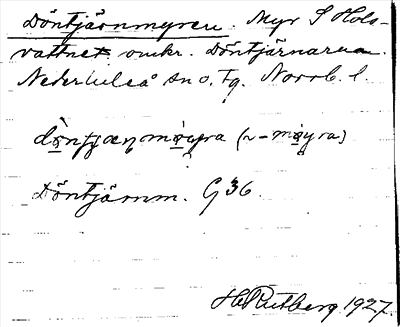 Döntjärnmyren. Myr S Hols-
vattnet omkr. Döntjärnarna.
Nederluleå sn o. tg. Norrb. l.
(~-møyra)
Döntjärnm. G 36.
H Rutberg 1927.